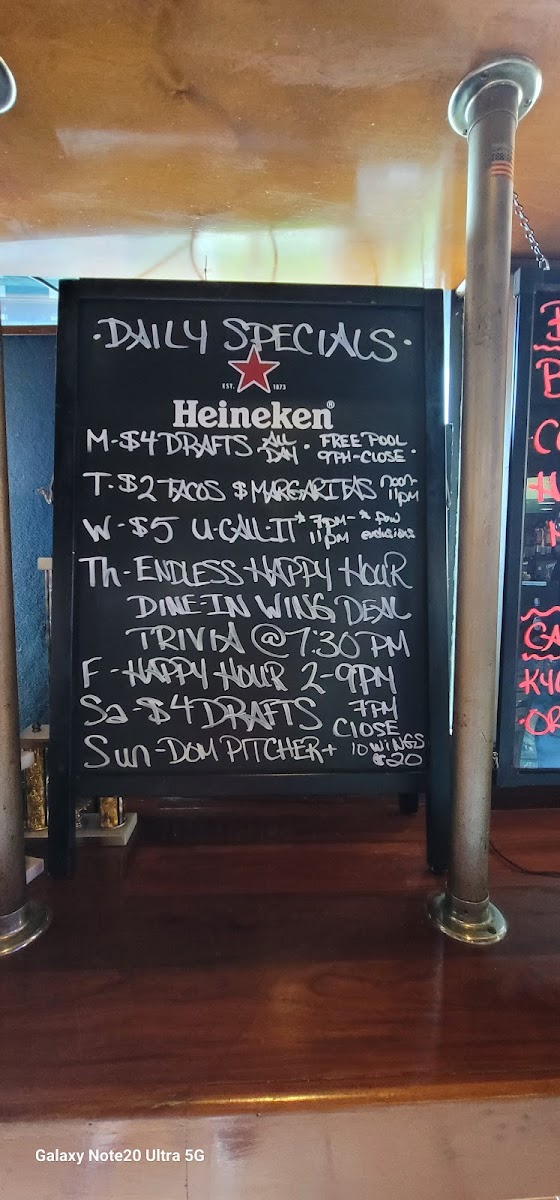 ·DAILY SPECIALS·
EST. 1873
Heineken®
M-$4 DRAFTS ALL DAY · FREE POOL 9PM-CLOSE ·
T-$2 TACOS $ MARGARITAS noon-11pm
W-$5 U-CALL-IT* 7pm-11pm * few exclusions
Th-ENDLESS HAPPY HOUR
DINE-IN WING DEAL
TRIVIA @7:30PM
F-HAPPY HOUR 2-9PM
Sa-$4 DRAFTS 7PM CLOSE
Sun-DOM PITCHER+ 10 WINGS $20
Galaxy Note20 Ultra 5G